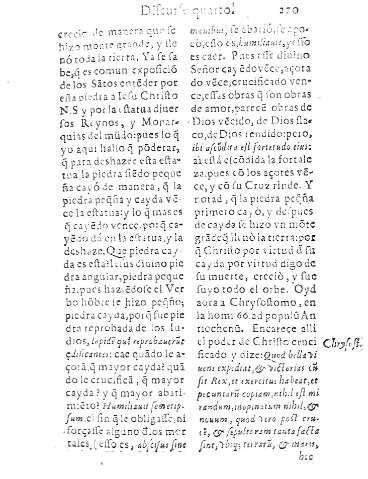 Discurso quarto.
270
crecio de manera que se
hizo monte grande, y lle
nò toda la tierra. Ya se sa
be, q̃ es comun exposiciõ
de los Sãtos entẽder por
esta piedra a Iesu Christo
N.S y por la estatua diuer
sos Reynos, y Monar-
quias del mũdo: pues lo q̃
yo aqui hallo q̃ põderar,
q̃ para deshazer esta esta
tua, la piedra siẽdo peque
ña cayò de manera, q̃ la
piedra peq̃ña y cayda vẽ-
ce la estatua: y lo q̃ mas es
q̃ cayẽdo vence, porq̃ ca-
yẽdo dà en la estatua, y la
deshaze. Que piedra cay-
da es esta?
diuino pie
dra angular, piedra peque
ña, pues haziẽdose el Ver
bo hõbre se hizo peq̃ño;
piedra cayda, porq̃ fue pie
dra reprobada de los Iu-
dios, lapidẽ quẽ reprobauerũt
ædificantes: cae quãdo le a-
çotã, q̃ mayor cayda? quã
do le crucificã, q̃ mayor
cayda? y q̃ mayor abati-
miẽto? Humiliauit semetip-
sum. el sin q̃ le obligasse, ni
forçasse alguno d̃ los mor
tales, (esso es, absq; sine
mentibus, se abatiò, se apo-
cò, esso es, humiliauit, y esso
es caer. Pues este diuino
Señor cayẽdo vẽce, açota
do vẽce, crucificado ven-
ce, essas obras q̃ son obras
de amor, parecẽ obras de
Dios vẽcido, de Dios fla-
co, de Dios rendido: pero,
ibi abscõdita est fortitudo eius:
aì està escõdida la fortale
za. pues cõ los açotes vẽ-
ce, y cõ su Cruz rinde. Y
notad, q̃ la piedra peq̃ña
primero cayò, y despues
de cayda se hizo vn mõte
grãde q̃ llenò la tierra: por
q̃ Christo por virtud d̃ su
cayda por virtud digo de
su muerte, creciò, y fue
suyo todo el orbe. Oyd
aora a Chrysostomo, en
la homi 66. ad populũ An
tiochenũ. Encarece alli
el poder de Christo cruci
ficado y dize: Quod bella vi
uens expediat, & victorias cũ
sit Rex, et exercitus habeat, et
pecuniarũ copiam, nihil est mi
randum, inopinatum nihil, &
nouum, quod vero post cru-
cẽ, & sepulturam tanta facta
sint, vbiq; terrarũ, & maris,
hic
Chrysost.